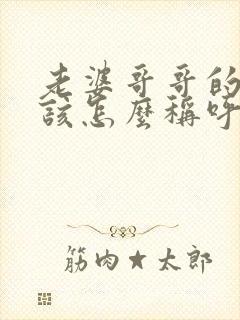 老婆哥哥的
該怎麼稱呼
筋肉★太郎